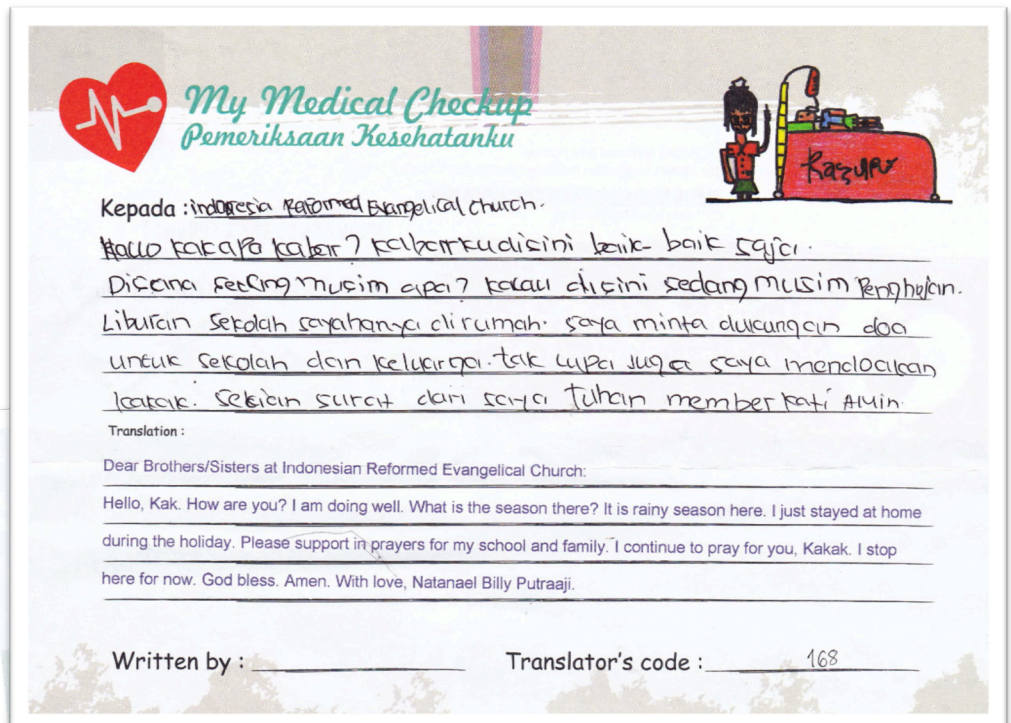 My Medical Checkup
Pemeriksaan Kesehatanku
Kepada : indonesia Reformed Evangelical church.
Hallo kak apa kabar? kabarku disini baik-baik saja.
Disana sedang musim apa? kalau disini sedang musim Penghujan.
Liburan sekolah saya hanya dirumah. saya minta dukungan doa
untuk sekolah dan keluarga. tak lupa juga saya mendoakan
kakak. Sekian surat dari saya Tuhan memberkati Amin.
Translation :
Dear Brothers/Sisters at Indonesian Reformed Evangelical Church:
Hello, Kak. How are you? I am doing well. What is the season there? It is rainy season here. I just stayed at home
during the holiday. Please support in prayers for my school and family. I continue to pray for you, Kakak. I stop
here for now. God bless. Amen. With love, Natanael Billy Putraaji.
Written by :
Translator's code : 168